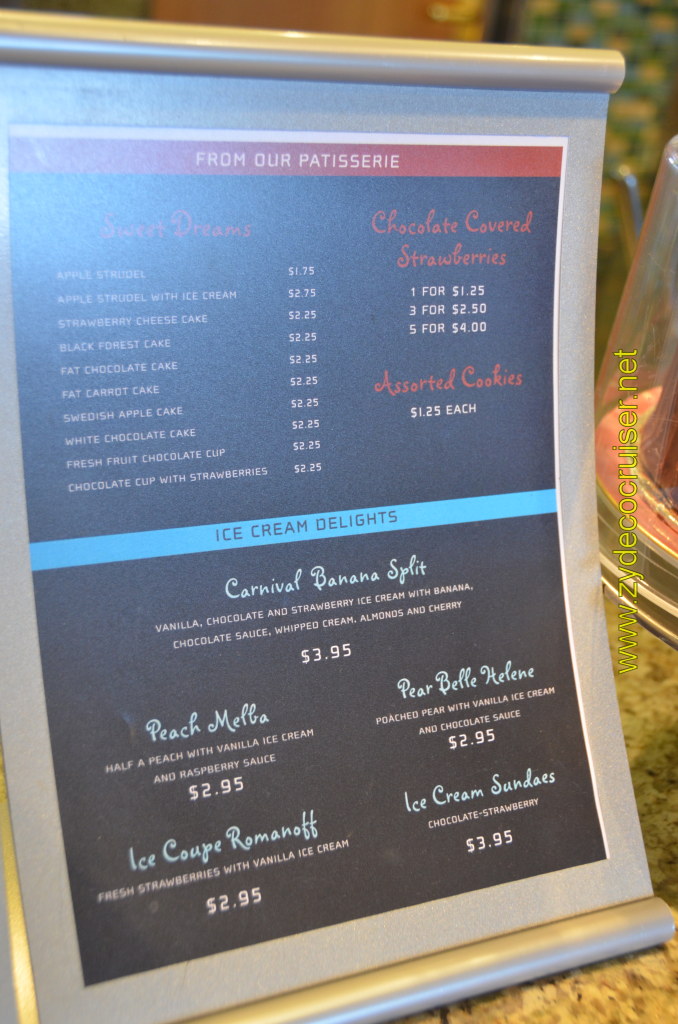 FROM OUR PATISSERIE
Sweet Dreams
APPLE STRUDEL $1.75
APPLE STRUDEL WITH ICE CREAM $2.75
STRAWBERRY CHEESE CAKE $2.25
BLACK FOREST CAKE $2.25
FAT CHOCOLATE CAKE $2.25
FAT CARROT CAKE $2.25
SWEDISH APPLE CAKE $2.25
WHITE CHOCOLATE CAKE $2.25
FRESH FRUIT CHOCOLATE CUP $2.25
CHOCOLATE CUP WITH STRAWBERRIES $2.25
Chocolate Covered
Strawberries
1 FOR $1.25
3 FOR $2.50
5 FOR $4.00
Assorted Cookies
$1.25 EACH
ICE CREAM DELIGHTS
Carnival Banana Split
VANILLA, CHOCOLATE AND STRAWBERRY ICE CREAM WITH BANANA,
CHOCOLATE SAUCE, WHIPPED CREAM, ALMONDS AND CHERRY
$3.95
Peach Melba
HALF A PEACH WITH VANILLA ICE CREAM
AND RASPBERRY SAUCE
$2.95
Pear Belle Helene
POACHED PEAR WITH VANILLA ICE CREAM
AND CHOCOLATE SAUCE
$2.95
Ice Coupe Romanoff
FRESH STRAWBERRIES WITH VANILLA ICE CREAM
$2.95
Ice Cream Sundaes
CHOCOLATE-STRAWBERRY
$3.95
www.zydecocruiser.net